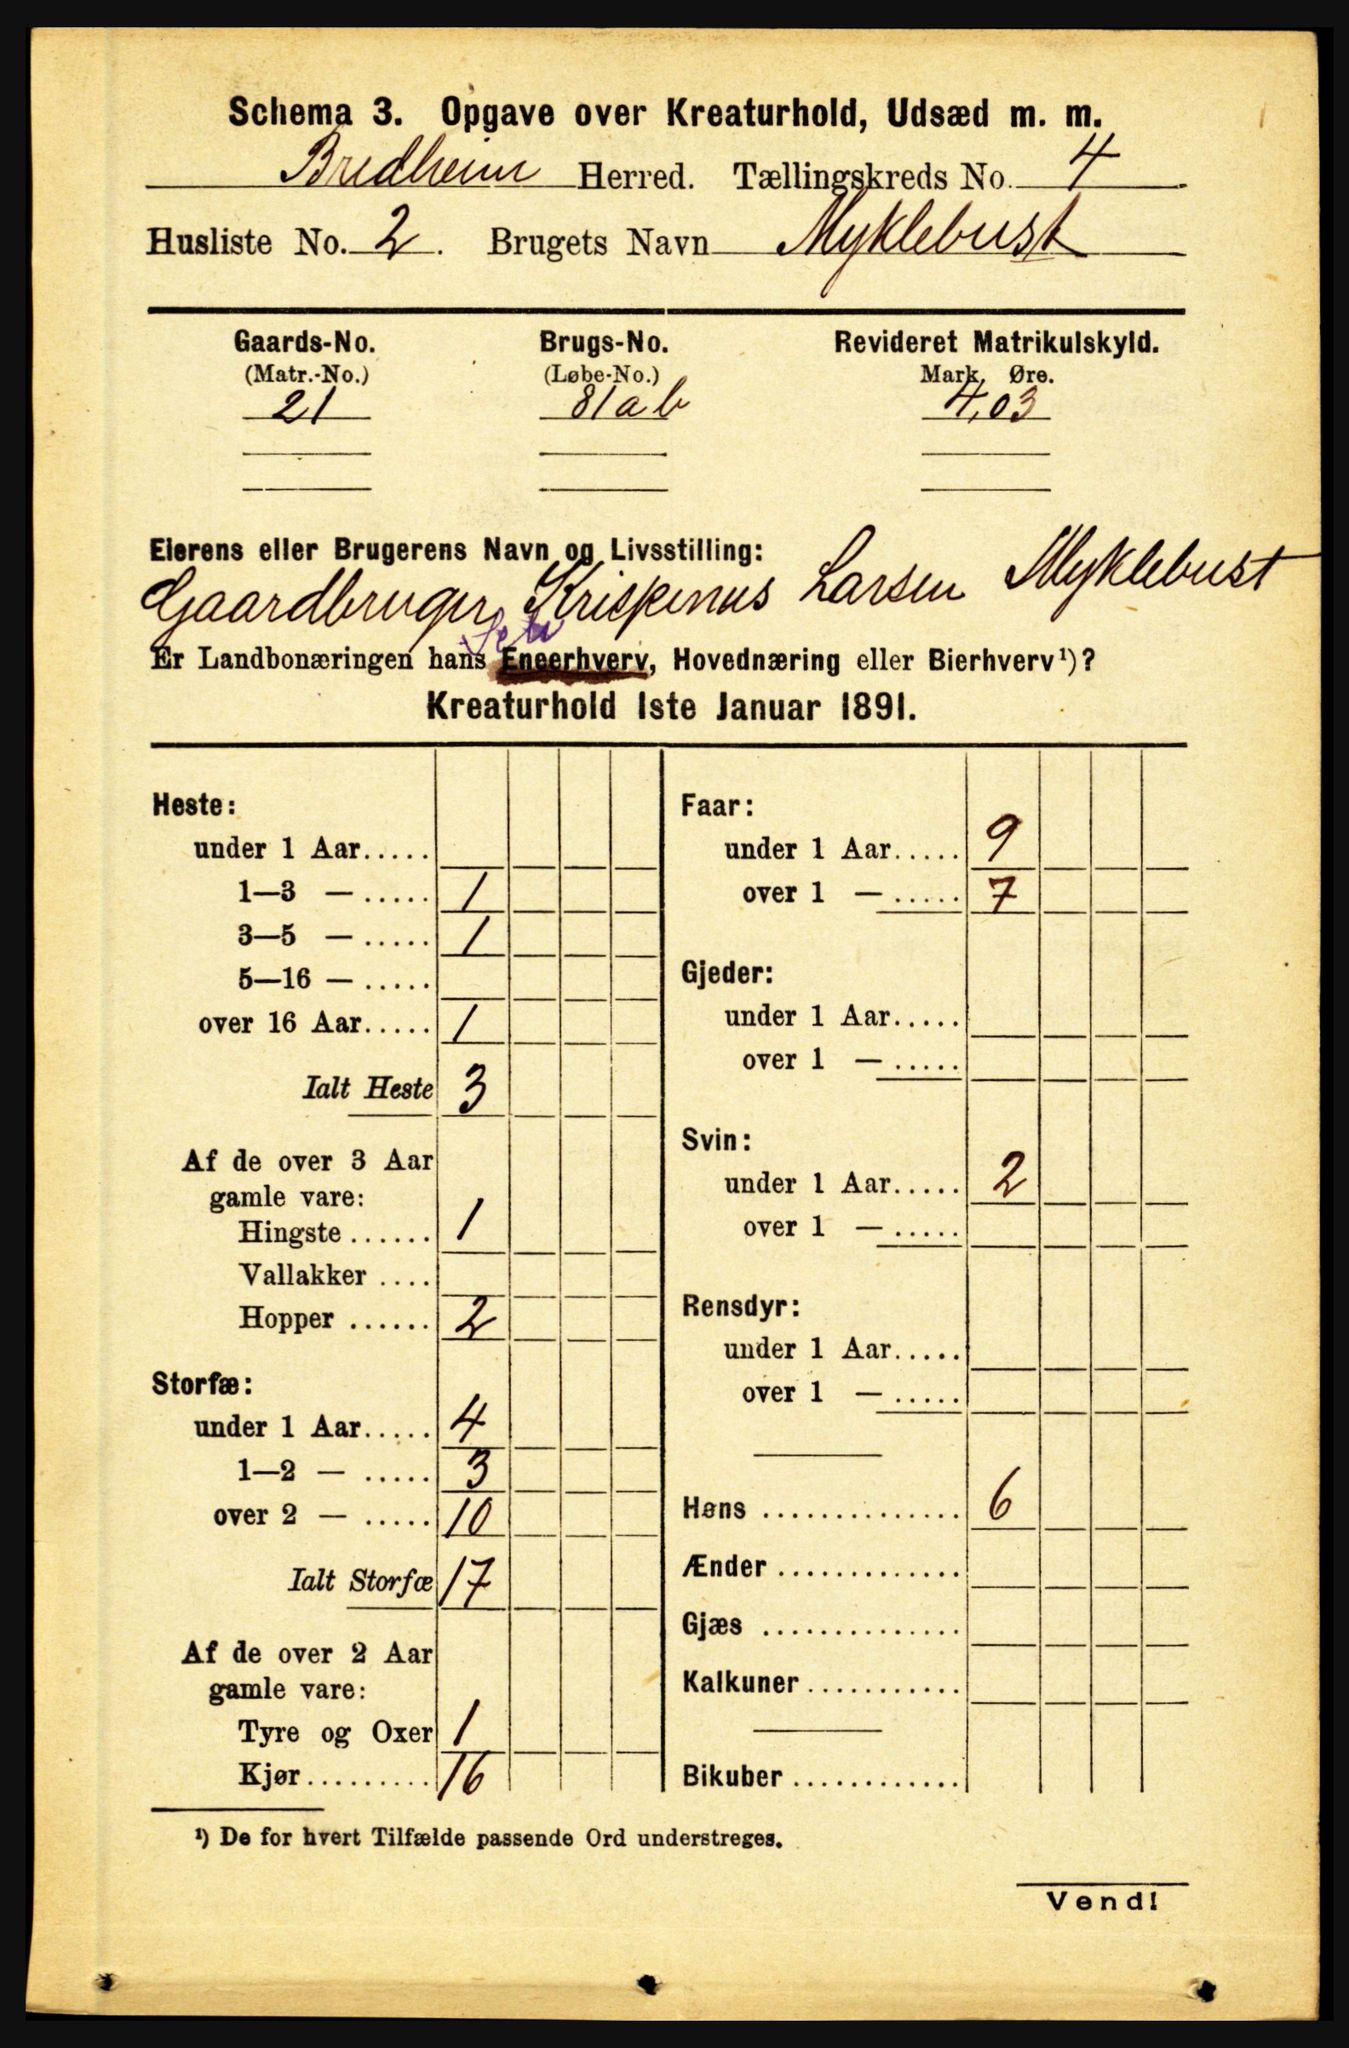 Schema 3. Opgave over Kreaturhold, Udsæd m. m.
Bredheim Herred. Tællingskreds No. 4
Husliste No. 2. Brugets Navn Myklebust
Gaards-No. Brugs-No. Revideret Matrikulskyld.
(Matr.-No.) (Løbe-No.) Mark. Øre.
21 81ab 4,03
Eierens eller Brugerens Navn og Livsstilling:
Gaardbruger Krispinus Larsen Myklebust
Selv
Er Landbonæringen hans Eneerhverv, Hovednæring eller Bierhverv¹)?
Kreaturhold 1ste Januar 1891.
Heste:
under 1 Aar.....
1—3 — ..... 1
3—5 — ..... 1
5—16 — .....
over 16 Aar..... 1
Ialt Heste 3
Af de over 3 Aar
gamle vare:
Hingste ...... 1
Vallakker ....
Hopper ...... 2
Storfæ:
under 1 Aar..... 4
1—2 — ..... 3
over 2 — ..... 10
Ialt Storfæ 17
Af de over 2 Aar
gamle vare:
Tyre og Oxer 1
Kjør......... 16
Faar:
under 1 Aar..... 9
over 1 — ..... 7
Gjeder:
under 1 Aar.....
over 1 — .....
Svin:
under 1 Aar..... 2
over 1 — .....
Rensdyr:
under 1 Aar.....
over 1 — .....
Høns .............. 6
Ænder .............
Gjæs ..............
Kalkuner ...........
Bikuber ............
¹) De for hvert Tilfælde passende Ord understreges.
Vend!